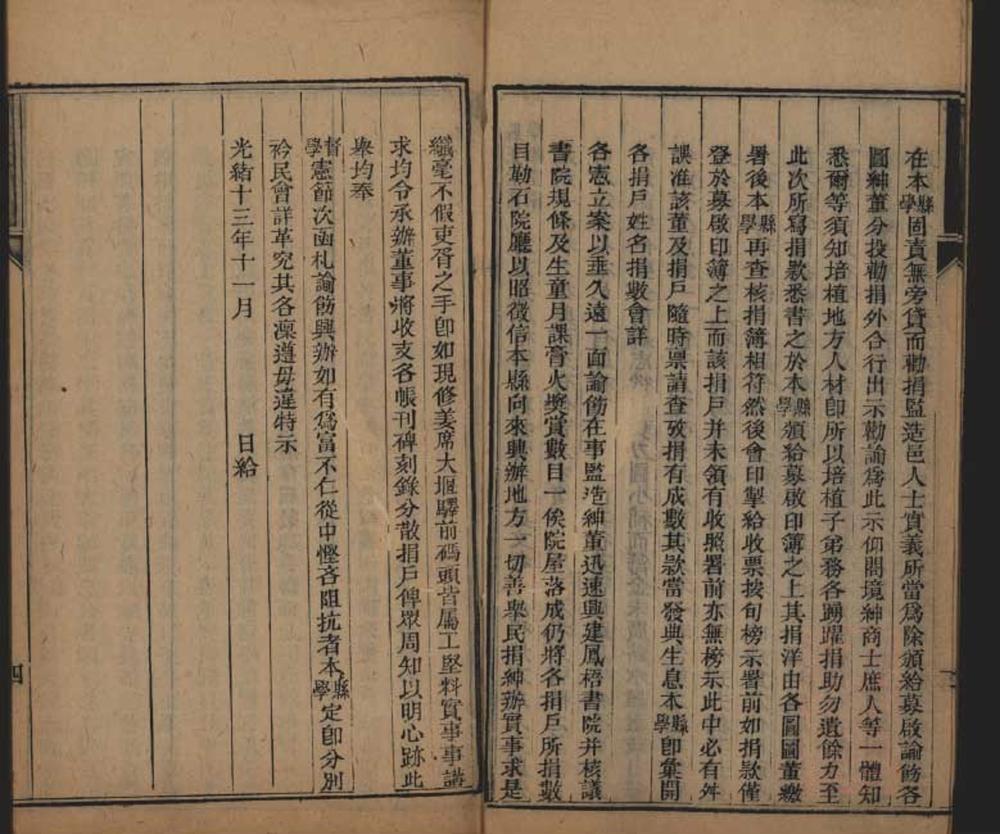 在本縣學固責無旁貸而勸捐監造邑人士實義所當爲除頒給募啟諭飭各
圖紳董分投勸捐外合行出示勸諭爲此示仰闔境紳商士庶人等一體知
悉爾等須知培植地方人材卽所以培植子弟務各踴躍捐助勿遺餘力至
此次所寫捐款悉書之於本縣學頒給募啟印簿之上其捐洋由各圖圖董繳
署後本縣學再查核捐簿相符然後會印掣給收票按旬榜示署前如捐款僅
登於募啟印簿之上而該捐戶并未領有收照署前亦無榜示此中必有舛
誤准該董及捐戶隨時票請查攷捐有成數其款當發典生息本縣學卽彙開
各捐戶姓名捐數會詳
各憲立案以垂久遠一面諭飭在事監造紳董迅速興建鳳梧書院并核議
書院規條及生童月課膏火獎賞數目一俟院屋落成仍將各捐戶所捐數
目勒石院廳以昭徵信本縣向來興辦地方一切善舉民捐紳辦實事求是
纖毫不假吏胥之手卽如現修姜席大堰驛前碼頭皆屬工堅料實事事講
求均令承辦董事將收支各帳刊碑刻錄分散捐戶俾眾周知以明心跡此
舉均奉
督學憲節次函札諭飭興辦如有爲富不仁從中慳吝阻抗者本縣學定卽分別
衿民會詳革究其各凜遵毋違特示
光緒十三年十一月　日給
四